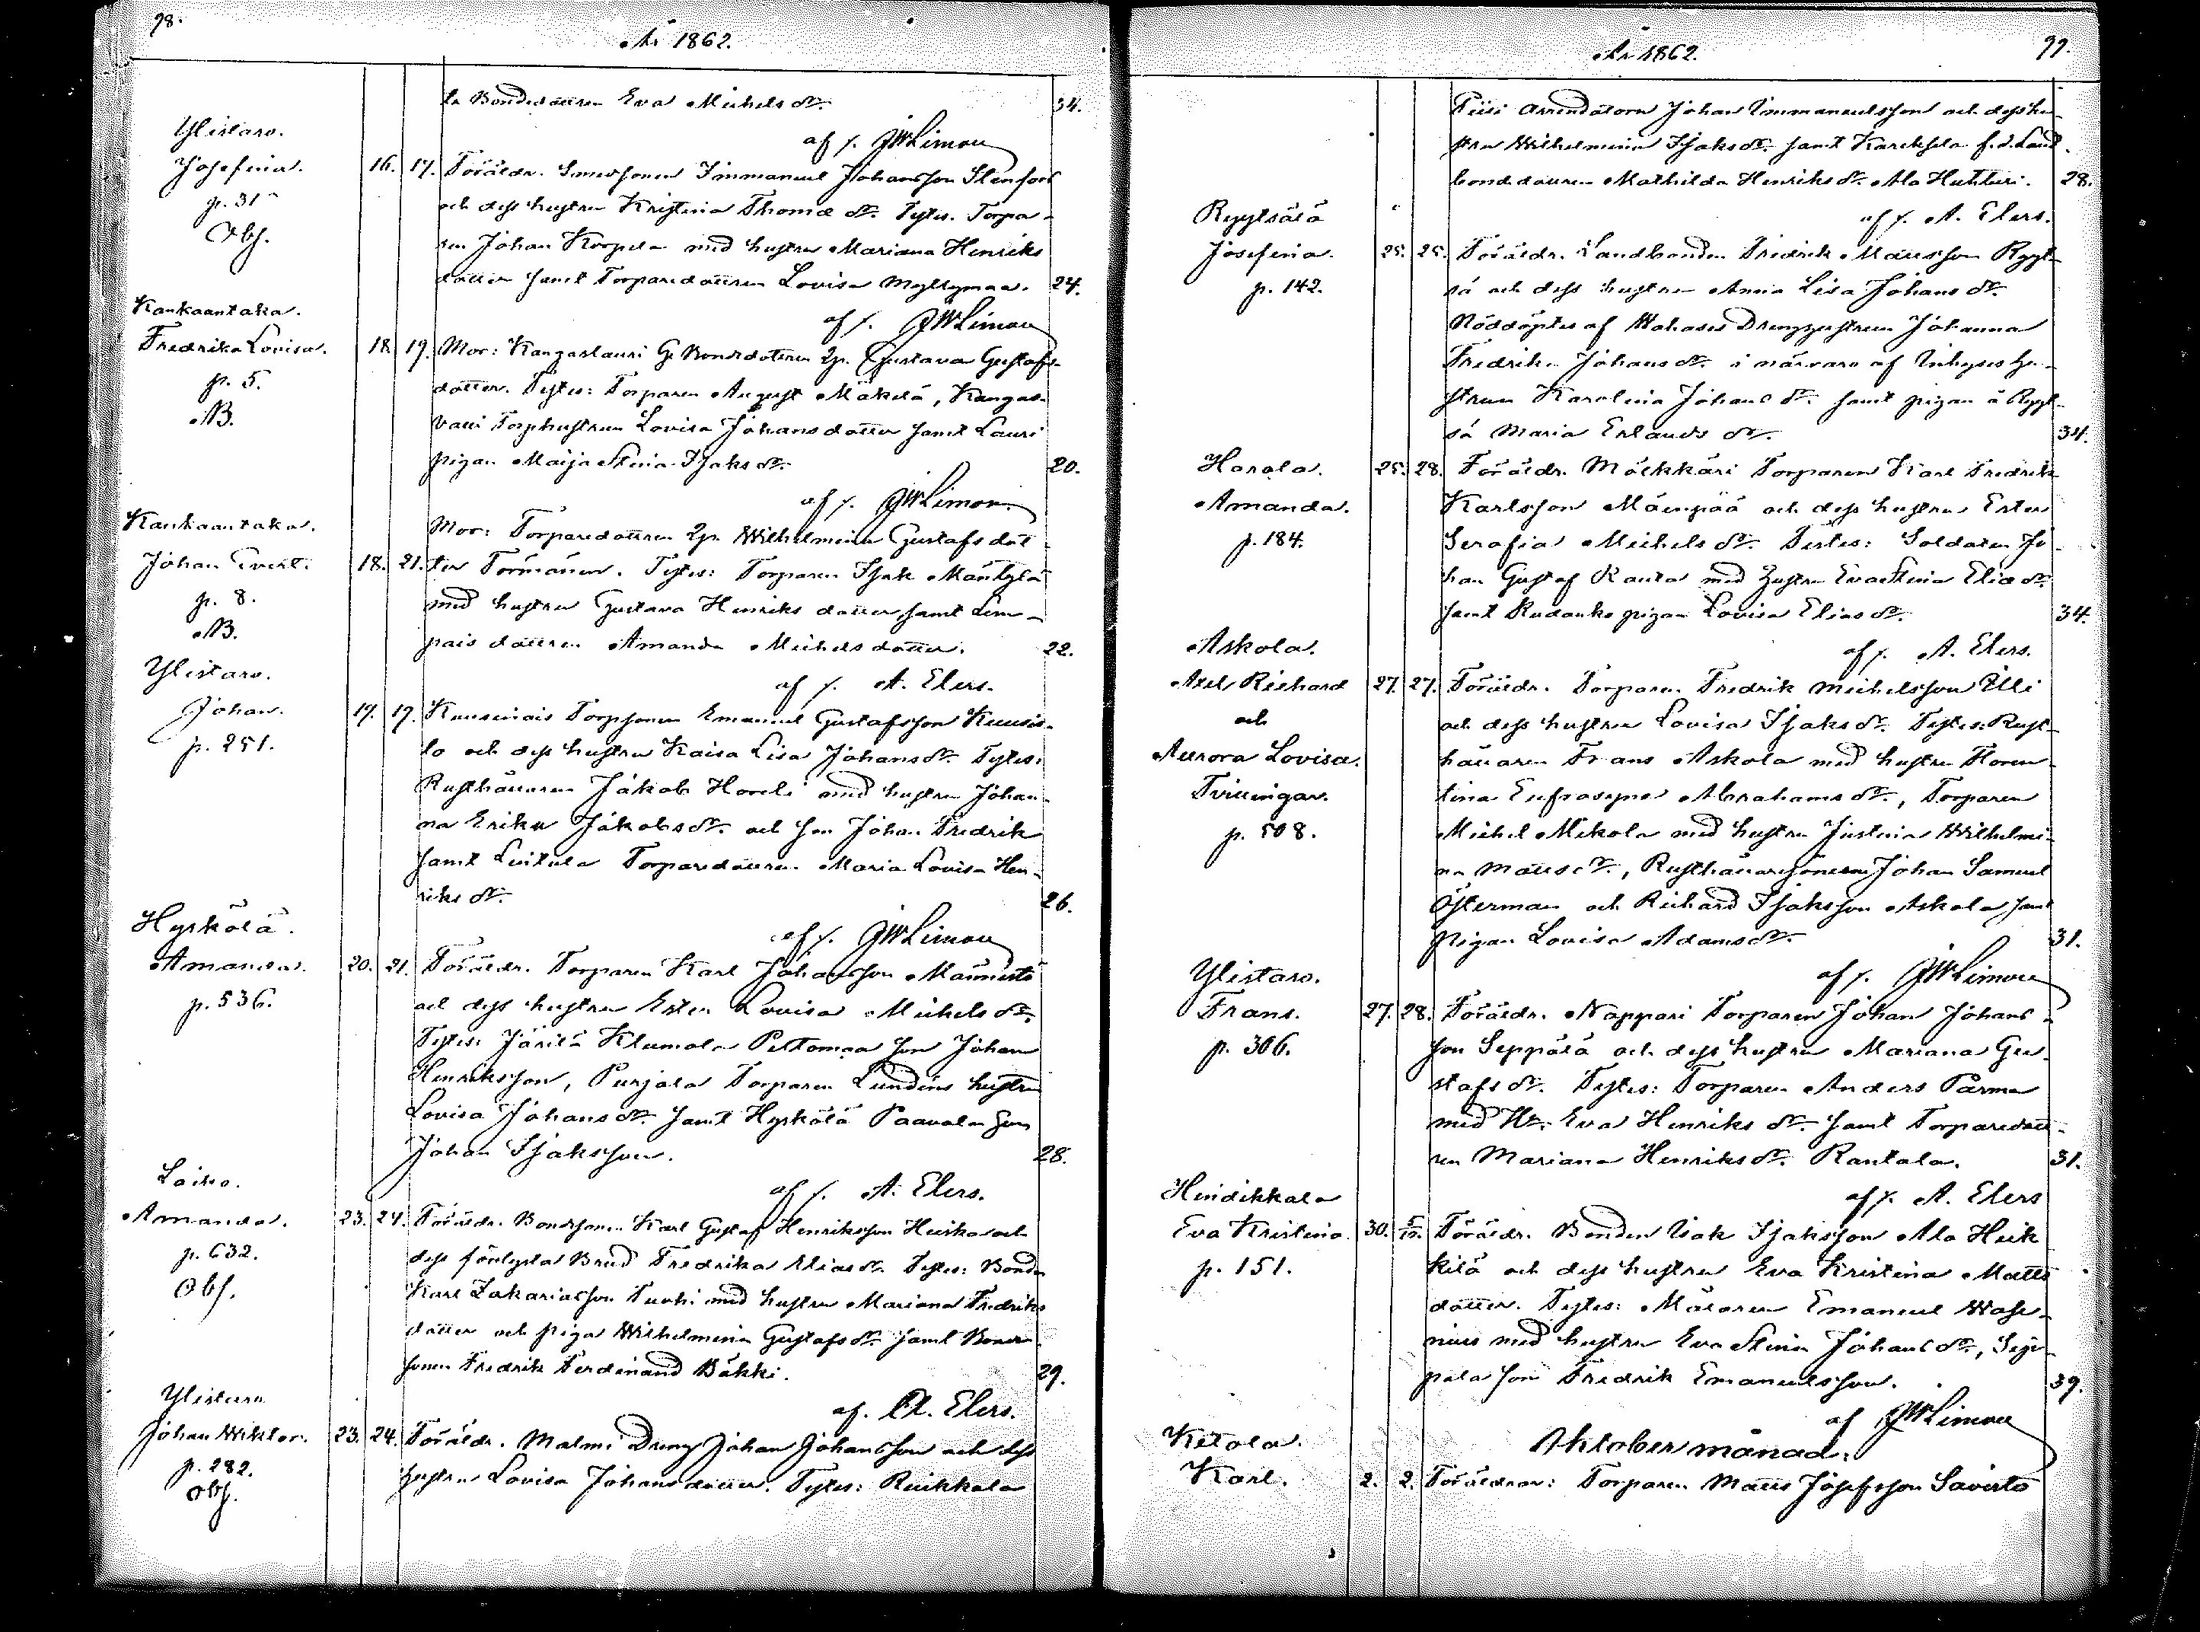 98.
År 1862.
la Bondedottren Eva Michels dr. 34.
af f. JWLimon
Ylistaro.
Josefina. 16. 17. Föräldr. Smedsonen Immanuel Johansson Stenfors
p. 31
Obs.
och dess hustru Kristina Thomæ dr. Testes. Torpa-
ren Johan Korpela med hustru Mariana Henriks
dotter samt Torparedottren Lovisa Myllymaa. 24.
af f. JWLimon
Kankaantaka.
Fredrika Lovisa. 18. 19. Mor: Kangaslauri Bondedottren Gustava Gustafs-
p. 5.
NB.
dotter. Testes: Torparen August Mäkelä, Kangas-
lauri Torphustrun Lovisa Johansdotter samt Lauri
pigan Maija Stina Isaks dr. 20.
af f. JWLimon
Kankaantaka.
Mor: Torparedottren Wilhelmina Gustafsdot-
Johan Evert. 18. 21. ter Törmänen. Testes: Torparen Isak Mäntylä
p. 8.
NB.
med hustru Gustava Henriksdotter samt Lem-
pais dottren Amanda Michelsdotter. 22.
af f. A. Elers.
Ylistaro.
Johan. 17. 19. Kuusinais Torpsonen Emanuel Gustafsson Kuusis-
p. 251.
to och dess hustru Kaisa Lisa Johans dr. Testes:
Rusthållaren Jakob Horeli med hustru Johan-
na Erika Jakobs dr. och son Johan Fredrik
samt Luitula Torparedottren Maria Lovisa Hen-
riks dr. 26.
af f. JWLimon
Hyrkölä.
Amanda. 20. 21. Föräldr. Torparen Karl Johansson Männistö
p. 536.
och dess hustru Ester Lovisa Michels dr.
Testes: Järilä Klemola Peltomaa son Johan
Henriksson, Purjala Torparen Lundéns hustru
Lovisa Johans dr. samt Hyrkölä Paavola son
Johan Isaksson. 28.
af f. A. Elers.
Loimo.
Amanda. 23. 24. Föräldr. Bondsonen Karl Gustaf Henriksson Heiska och
p. 632.
Obs.
dess förlofvade Brud Fredrika Elias dr. Testes: Bonden
Karl Zakariasson Tuohi med hustru Mariana Fredriks
dotter och piga Wilhelmina Gustafs dr. samt Bonde-
sonen Fredrik Ferdinand Bäkki. 29.
af. A. Elers.
Ylistaro
Johan Wiktor. 23. 24. Föräldr. Malmi Dreng Johan Johansson och dess
p. 282.
Obs.
hustru Lovisa Johansdotter. Testes: Reikkala
År 1862.
99.
Piisi Arrendatorn Johan Immanuelsson och dess hu-
stru Wilhelmina Isaks dr. samt Kareksela f.d. Land-
bonddottren Mathilda Henriks dr. Ala Huhturi. 28.
af f. A. Elers.
Ryytsälä
Josefina. 25. 25. Föräldr. Landbonden Fredrik Mattsson Ryyt-
p. 142.
sä och dess hustru Anna Lisa Johans dr.
Nöddöptes af Wahases Drenghustrun Johanna
Fredrika Johans dr. i närvaro af Inhyses hu-
strun Karolina Johans dr. samt pigan å Ryyt-
sä Maria Erlands dr. 34.
Horola. 25. 28. Föräldr. Mälkkäri Torparen Karl Fredrik
Amanda.
p. 184.
Karlsson Mäenpää och dess hustru Ester
Serafia Michels dr. Testes: Soldaten Jo-
han Gustaf Ranta med hustru Eva Stina Eliæ dr.
samt Rudanko pigan Lovisa Elias dr. 34.
af f. A. Elers.
Askola.
Axel Richard 27. 27. Föräldr. Torparen Fredrik Michelsson Elli
och
Aurora Lovisa.
Tvillingar.
p. 508.
och dess hustru Lovisa Isaks dr. Testes: Rust-
hållaren Frans Askola med hustru Floren-
tina Eufrosyne Abrahams dr., Torparen
Michel Mikola med hustru Justina Wilhelmi-
na Matts dr., Rusthållaresonen Johan Samuel
Österman och Richard Isaksson Askola samt
pigan Lovisa Adams dr. 31.
af f. JWLimon
Ylistaro.
Frans. 27. 28. Föräldr. Nappari Torparen Johan Johans-
p. 306.
son Seppälä och dess hustru Mariana Gu-
stafs dr. Testes: Torparen Anders Pärma
med H. Eva Henriks dr. samt Torparedott-
ren Mariana Henriks dr. Rantala. 31.
af f. A. Elers
Hindikkala
Eva Kristina. 30. 5/10. Föräldr. Bonden Isak Isaksson Ala Heik-
p. 151.
kilä och dess hustru Eva Kristina Matts
dotter. Testes: Målaren Emanuel Wase-
nius med hustru Eva Stina Johans dr., Sep-
pala son Fredrik Emanuelsson. 39.
af JWLimon
Oktober månad.
Ketola.
Karl. 2. 2. Föräldrar: Torparen Matts Josefsson Savisto